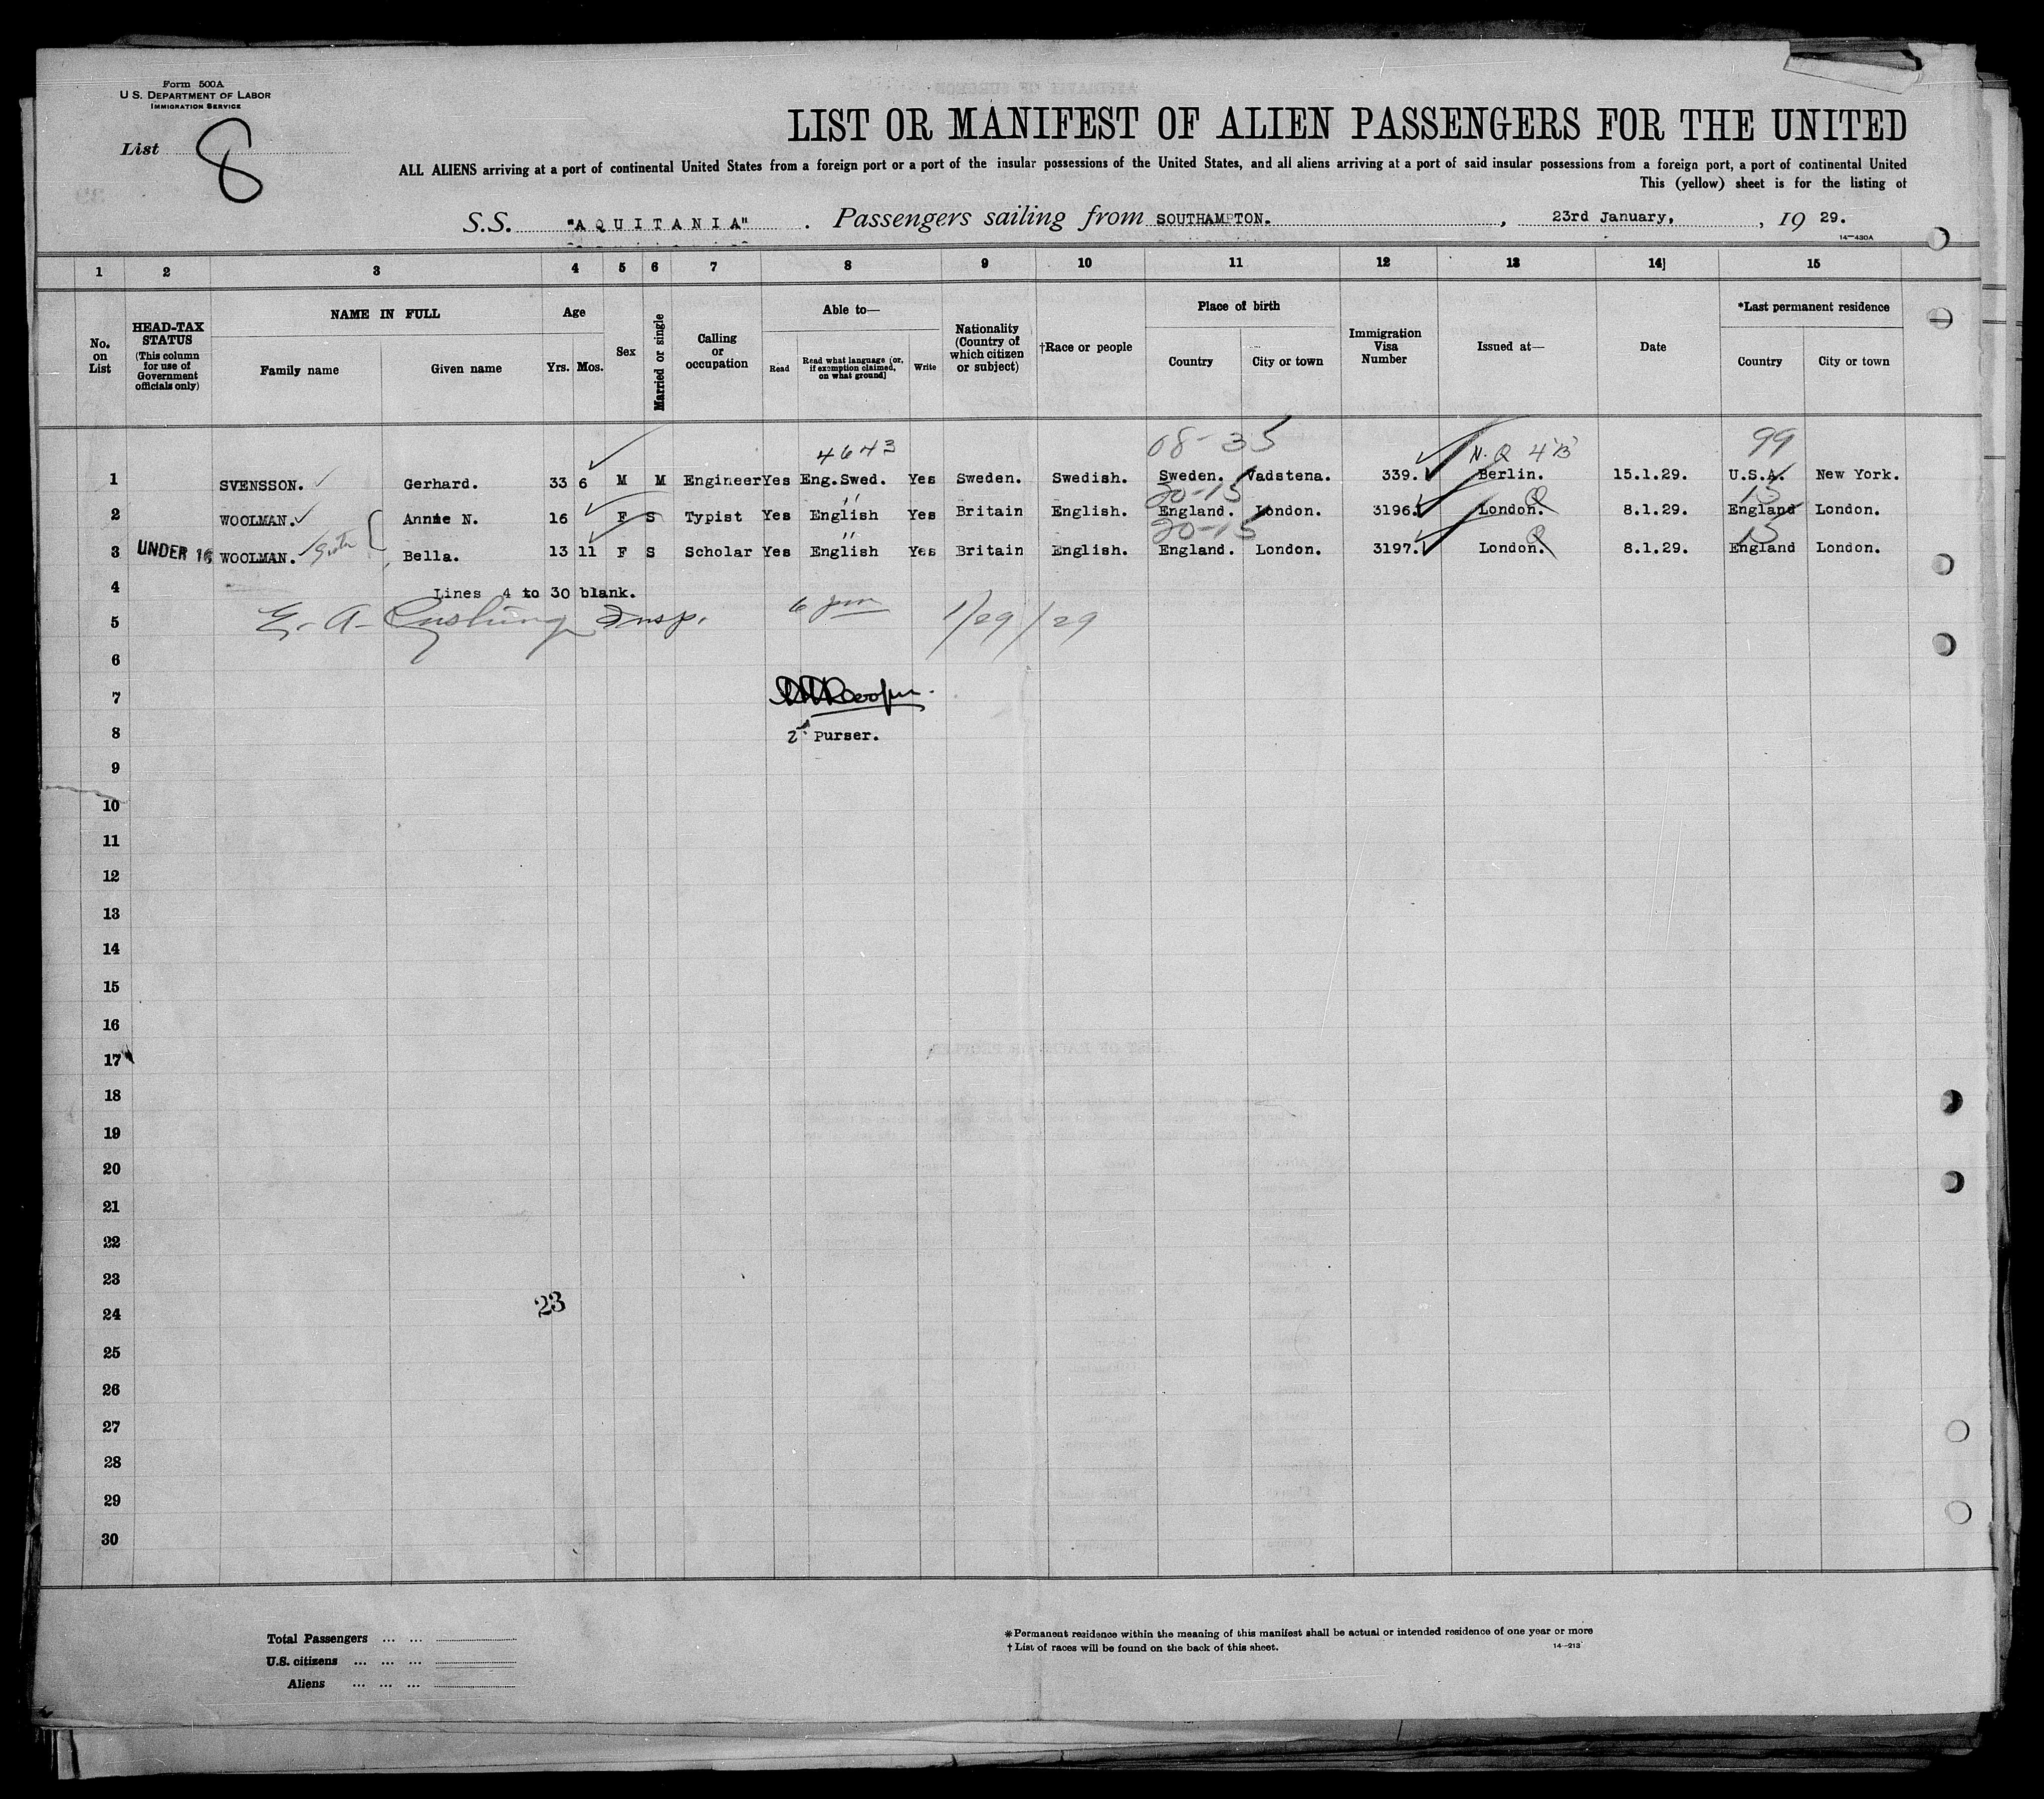 Form 500A
U.S. DEPARTMENT OF LABOR
IMMIGRATION SERVICE
List 8
LIST OR MANIFEST OF ALIEN PASSENGERS FOR THE UNITED
ALL ALIENS arriving at a port of continental United States from a foreign port or a port of the insular possessions of the United States, and all aliens arriving at a port of said insular possessions from a foreign port, a port of continental United
This (yellow) sheet is for the listing of
S.S. "AQUITANIA" . Passengers sailing from SOUTHAMPTON. , 23rd January, , 19 29.
14—430A
1 2 3 4 5 6 7 8 9 10 11 12 13 14] 15
No. on List
HEAD-TAX STATUS (This column for use of Government officials only)
NAME IN FULL
Family name
Given name
Age
Yrs. Mos.
Sex
Married or single
Calling or occupation
Able to—
Read
Read what language (or, if exemption claimed, on what ground)
Write
Nationality (Country of which citizen or subject)
†Race or people
Place of birth
Country
City or town
Immigration Visa Number
Issued at—
Date
*Last permanent residence
Country
City or town
4643 08-35 N.Q 4'B' 99
1 SVENSSON. Gerhard. 33 6 M M Engineer Yes Eng.Swed. Yes Sweden. Swedish. Sweden. Vadstena. 339. Berlin. 15.1.29. U.S.A. New York.
20-15 Q 15
2 WOOLMAN. Annie N. 16 F S Typist Yes English Yes Britain English. England. London. 3196. London. 8.1.29. England London.
20-15 Q 15
3 UNDER 16 WOOLMAN. Bella. 13 11 F S Scholar Yes English Yes Britain English. England. London. 3197. London. 8.1.29. England London.
4 Lines 4 to 30 blank.
5 E. A. Cushing Insp. 6 pm 1/29/29
6
7
8 2nd Purser.
9
10
11
12
13
14
15
16
17
18
19
20
21
22
23
23
24
25
26
27
28
29
30
Total Passengers ... ...
U.S. citizens ... ... ...
Aliens ... ... ...
*Permanent residence within the meaning of this manifest shall be actual or intended residence of one year or more
†List of races will be found on the back of this sheet.
14—213